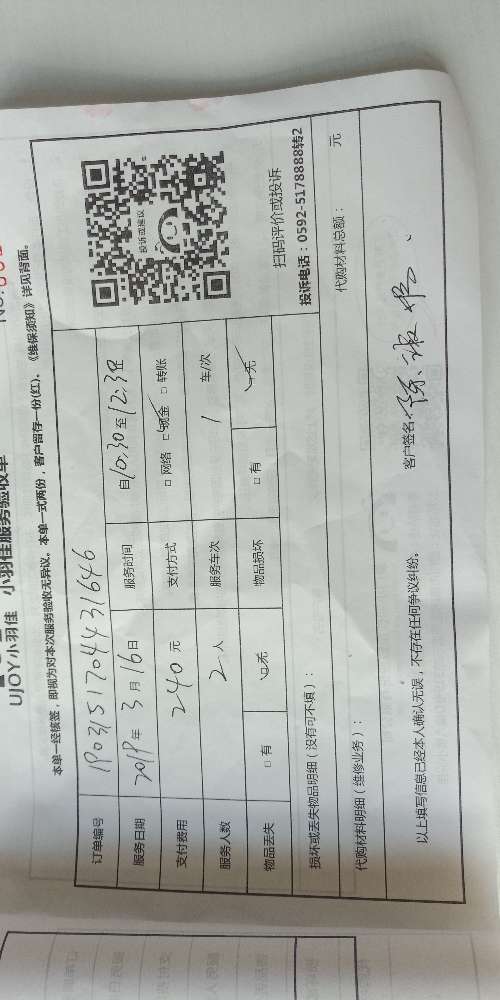 UJOY小羽佳 小羽佳服务验收单
本单一经核签，即视为对本次服务验收无异议。本单一式两份，客户留存一份(红)。《维保须知》详见背面。
订单编号 190315170443１646
服务日期 2019年3月16日 服务时间 自10:30至12:30
支付费用 240元 支付方式 □网络 □现金 □转账
服务人数 2人 服务车次 1 车/次
物品丢失 □有 □无 物品损坏 □有 □无
投诉或建议
扫码评价或投诉
投诉电话：0592-5178888转2
损坏或丢失物品明细（没有可不填）：
代购材料明细（维修业务）： 代购材料总额： 元
以上填写信息已经本人确认无误，不存在任何争议纠纷。 客户签名